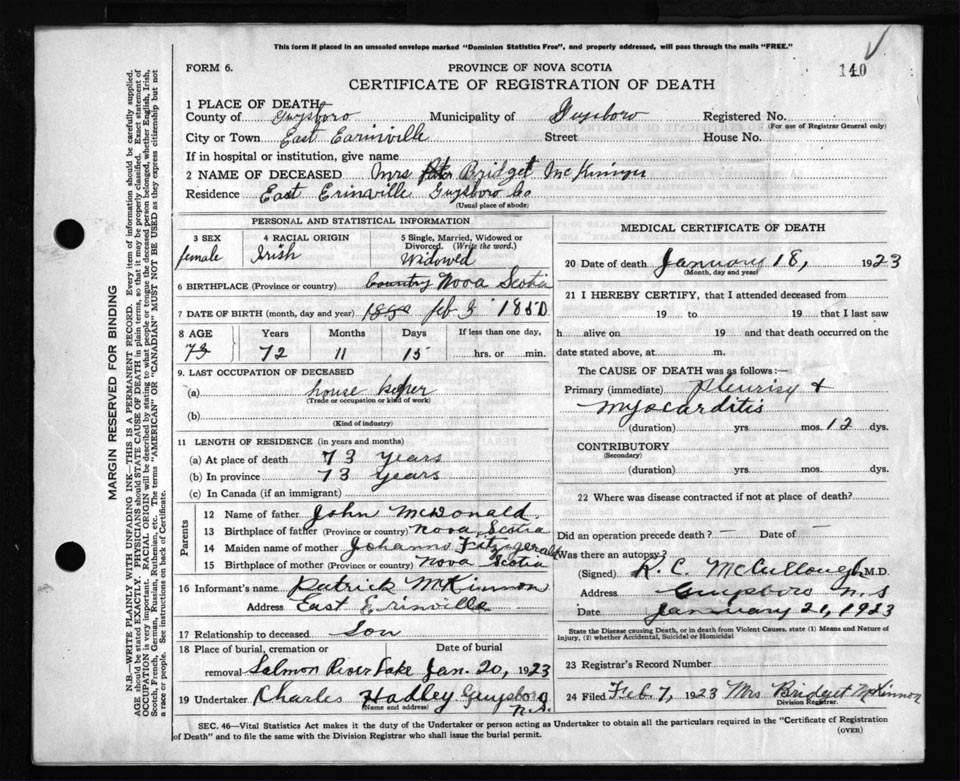 This form if placed in an unsealed envelope marked "Dominion Statistics Free", and properly addressed, will pass through the mails "FREE."
FORM 6.
PROVINCE OF NOVA SCOTIA
140
CERTIFICATE OF REGISTRATION OF DEATH
1 PLACE OF DEATH
County of Guysboro Municipality of Guysboro Registered No.
(For use of Registrar General only)
City or Town East Earinville Street House No.
If in hospital or institution, give name
2 NAME OF DECEASED Mrs Bridget McKinnon
Residence East Erinville Guysboro Co
(Usual place of abode)
PERSONAL AND STATISTICAL INFORMATION
3 SEX
female
4 RACIAL ORIGIN
Irish
5 Single, Married, Widowed or Divorced. (Write the word.)
Widowed
6 BIRTHPLACE (Province or country) Country Nova Scotia
7 DATE OF BIRTH (month, day and year) 1850 feb 3 1850
8 AGE Years Months Days If less than one day,
73 72 11 15 hrs. or min.
9. LAST OCCUPATION OF DECEASED
(a) house keper
(Trade or occupation or kind of work)
(b)
(Kind of industry)
11 LENGTH OF RESIDENCE (in years and months)
(a) At place of death 73 years
(b) In province 73 years
(c) In Canada (if an immigrant)
Parents
12 Name of father John McDonald
13 Birthplace of father (Province or country) Nova Scotia
14 Maiden name of mother Johanna Fitzgerald
15 Birthplace of mother (Province or country) Nova Scotia
16 Informant's name Patrick McKinnon
Address East Erinville
17 Relationship to deceased Son
18 Place of burial, cremation or Date of burial
removal Salmon River Lake Jan. 20, 1923
19 Undertaker Charles Hadley Guysboro N.S.
(Name and address)
MEDICAL CERTIFICATE OF DEATH
20 Date of death January 18, 1923
(Month, day and year)
21 I HEREBY CERTIFY, that I attended deceased from
19 to 19 that I last saw
h alive on 19 and that death occurred on
date stated above, at m.
The CAUSE OF DEATH was as follows:—
Primary (immediate) pleurisy &
myocarditis
(duration) yrs. mos. 12 dys.
CONTRIBUTORY
(Secondary)
(duration) yrs. mos. dys.
22 Where was disease contracted if not at place of death?
Did an operation precede death? — Date of —
Was there an autopsy?
(Signed) K. C. McCullough M.D.
Address Guysboro N.S
Date January 21, 1923
State the Disease causing Death, or in death from Violent Causes, state (1) Means and Nature of
Injury, (2) whether Accidental, Suicidal or Homicidal
23 Registrar's Record Number
24 Filed Feb. 7, 1923 Mrs Bridget McKinnon
Division Registrar.
SEC. 46—Vital Statistics Act makes it the duty of the Undertaker or person acting as Undertaker to obtain all the particulars required in the "Certificate of Registration
of Death" and to file the same with the Division Registrar who shall issue the burial permit.
(OVER)
MARGIN RESERVED FOR BINDING
N.B.—WRITE PLAINLY WITH UNFADING INK—THIS IS A PERMANENT RECORD. Every item of information should be carefully supplied.
AGE should be stated EXACTLY. PHYSICIANS should STATE CAUSE OF DEATH in plain terms, so that it may be properly classified. Exact statement of
OCCUPATION is very important. RACIAL ORIGIN will be described by stating to what people or tongue the deceased person belonged, whether English, Irish,
Scotch, French, German, Russian, Ruthenian, etc. The terms "AMERICAN" or "CANADIAN" MUST NOT BE USED as they express citizenship but not
a race or people. See instructions on back of Certificate.